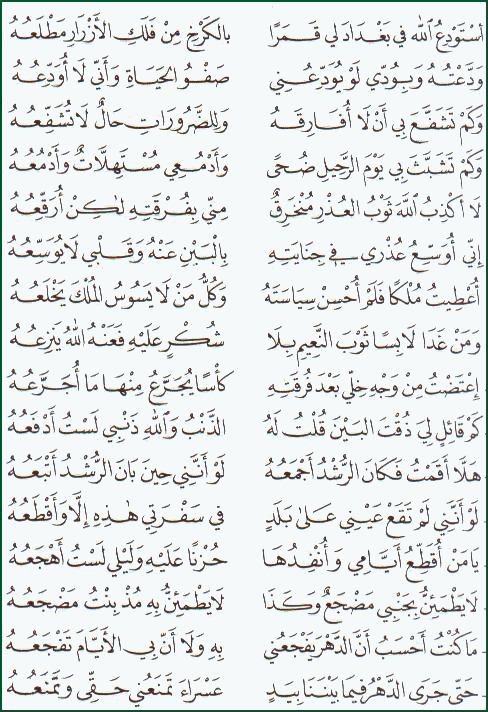 أَسْتَوْدِعُ ٱللهَ فِي بَغْدَادَ لِي قَمَرًا بِالكَرْخِ مِنْ فَلَكِ الأَزْرَارِ مَطْلَعُهُ
وَدَّعْتُهُ وَبِوُدِّي لَوْ يُوَدِّعُنِي صَفْوُ الحَيَاةِ وَأَنِّي لَا أُوَدِّعُهُ
وَكَمْ تَشَفَّعَ بِي أَنْ لَا أُفَارِقَهُ وَلِلضَّرُورَاتِ حَالٌ لَا تُشَفِّعُهُ
وَكَمْ تَشَبَّثَ بِي يَوْمَ الرَّحِيلِ ضُحًى وَأَدْمُعِي مُسْتَهِلَّاتٌ وَأَدْمُعُهُ
لَا أَكْذِبُ ٱللهَ ثَوْبُ العُذْرِ مُنْخَرِقٌ مِنِّي بِفُرْقَتِهِ لٰكِنْ أُرَقِّعُهُ
إِنِّي أُوَسِّعُ عُذْرِي فِي جِنَايَتِهِ بِالْبَيْنِ عَنْهُ وَقَلْبِي لَا يُوَسِّعُهُ
أُعْطِيتُ مُلْكًا فَلَمْ أُحْسِنْ سِيَاسَتَهُ وَكُلُّ مَنْ لَا يَسُوسُ المُلْكَ يَخْلَعُهُ
وَمَنْ غَدَا لَابِسًا ثَوْبَ النَّعِيمِ بِلَا شُكْرٍ عَلَيْهِ فَعَنْهُ اللهُ يَنْزِعُهُ
إِعْتَضْتُ مِنْ وَجْهِ خِلِّي بَعْدَ فُرْقَتِهِ كَأْسًا يُجَرَّعُ مِنْهَا مَا أُجَرَّعُهُ
كَمْ قَائِلٍ لِيَ ذُقْتَ البَيْنَ قُلْتُ لَهُ الذَّنْبُ وَٱللهِ ذَنْبِي لَسْتُ أَدْفَعُهُ
هَلَّا أَقَمْتَ فَكَانَ الرُّشْدُ أَجْمَعُهُ لَوْ أَنَّنِي حِينَ بَانَ الرُّشْدُ أَتْبَعُهُ
لَوْ أَنَّنِي لَمْ تَقَعْ عَيْنِي عَلَى بَلَدٍ فِي سَفْرَتِي هٰذِهِ إِلَّا وَأَقْطَعُهُ
يَا مَنْ أُقَطِّعُ أَيَّامِي وَأُنْفِدُهَا حُزْنًا عَلَيْهِ وَلَيْلِي لَسْتُ أَهْجَعُهُ
لَا يَطْمَئِنُّ بِجَنْبِي مَضْجَعٌ وَكَذَا لَا يَطْمَئِنُّ بِهِ مُذْ بِنْتُ مَضْجَعُهُ
مَا كُنْتُ أَحْسَبُ أَنَّ الدَّهْرَ يَفْجَعُنِي بِهِ وَلَا أَنَّ بِي الأَيَّامَ تَفْجَعُهُ
حَتَّى جَرَى الدَّهْرُ فِيمَا بَيْنَنَا بِيَدٍ عَسْرَاءَ تَمْنَعُنِي حَقِّي وَتَمْنَعُهُ